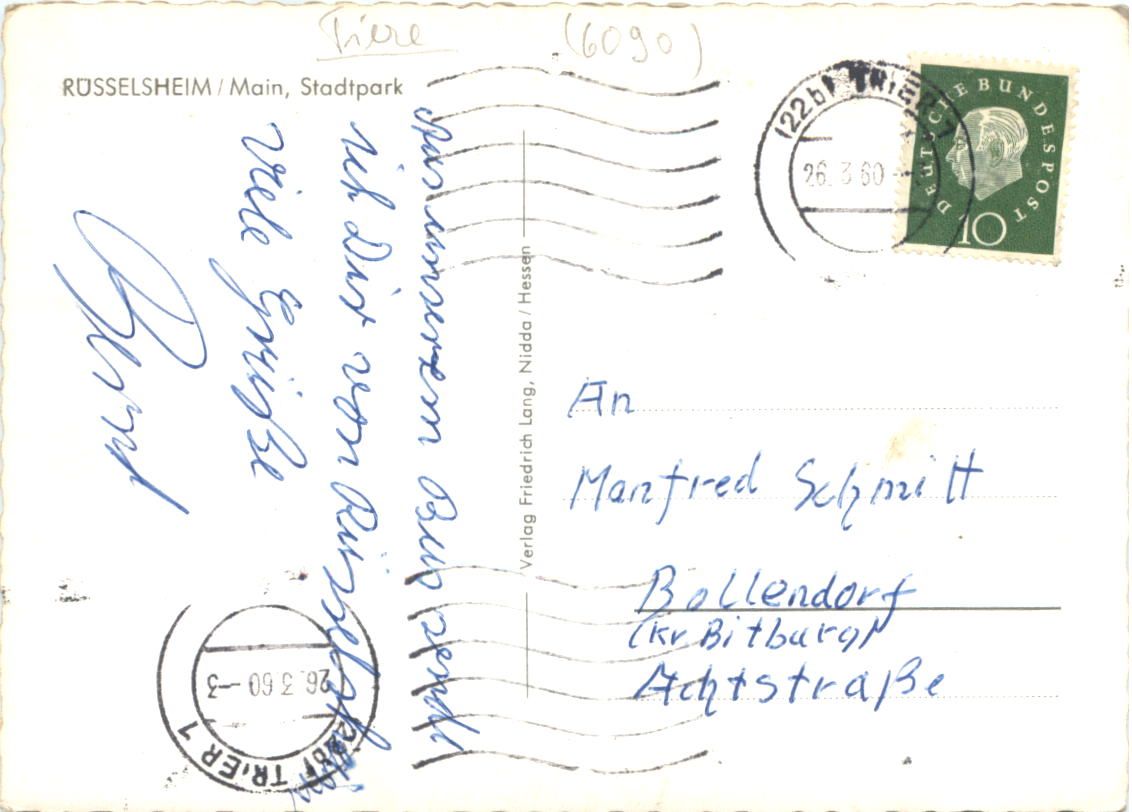 Tiere (6090)
RÜSSELSHEIM / Main, Stadtpark
Aus unserem Bus send
ich Dir von Rüsselsheim
viele Grüße
Bernd
Verlag Friedrich Lang, Nidda / Hessen
(22b) TRIER 1
26. 3. 60
DEUTSCHE BUNDESPOST
10
An
Manfred Schmitt
Bollendorf
(Kr Bitburg)
Achtstraße
(22b) TRIER 1
26. 3. 60 -3